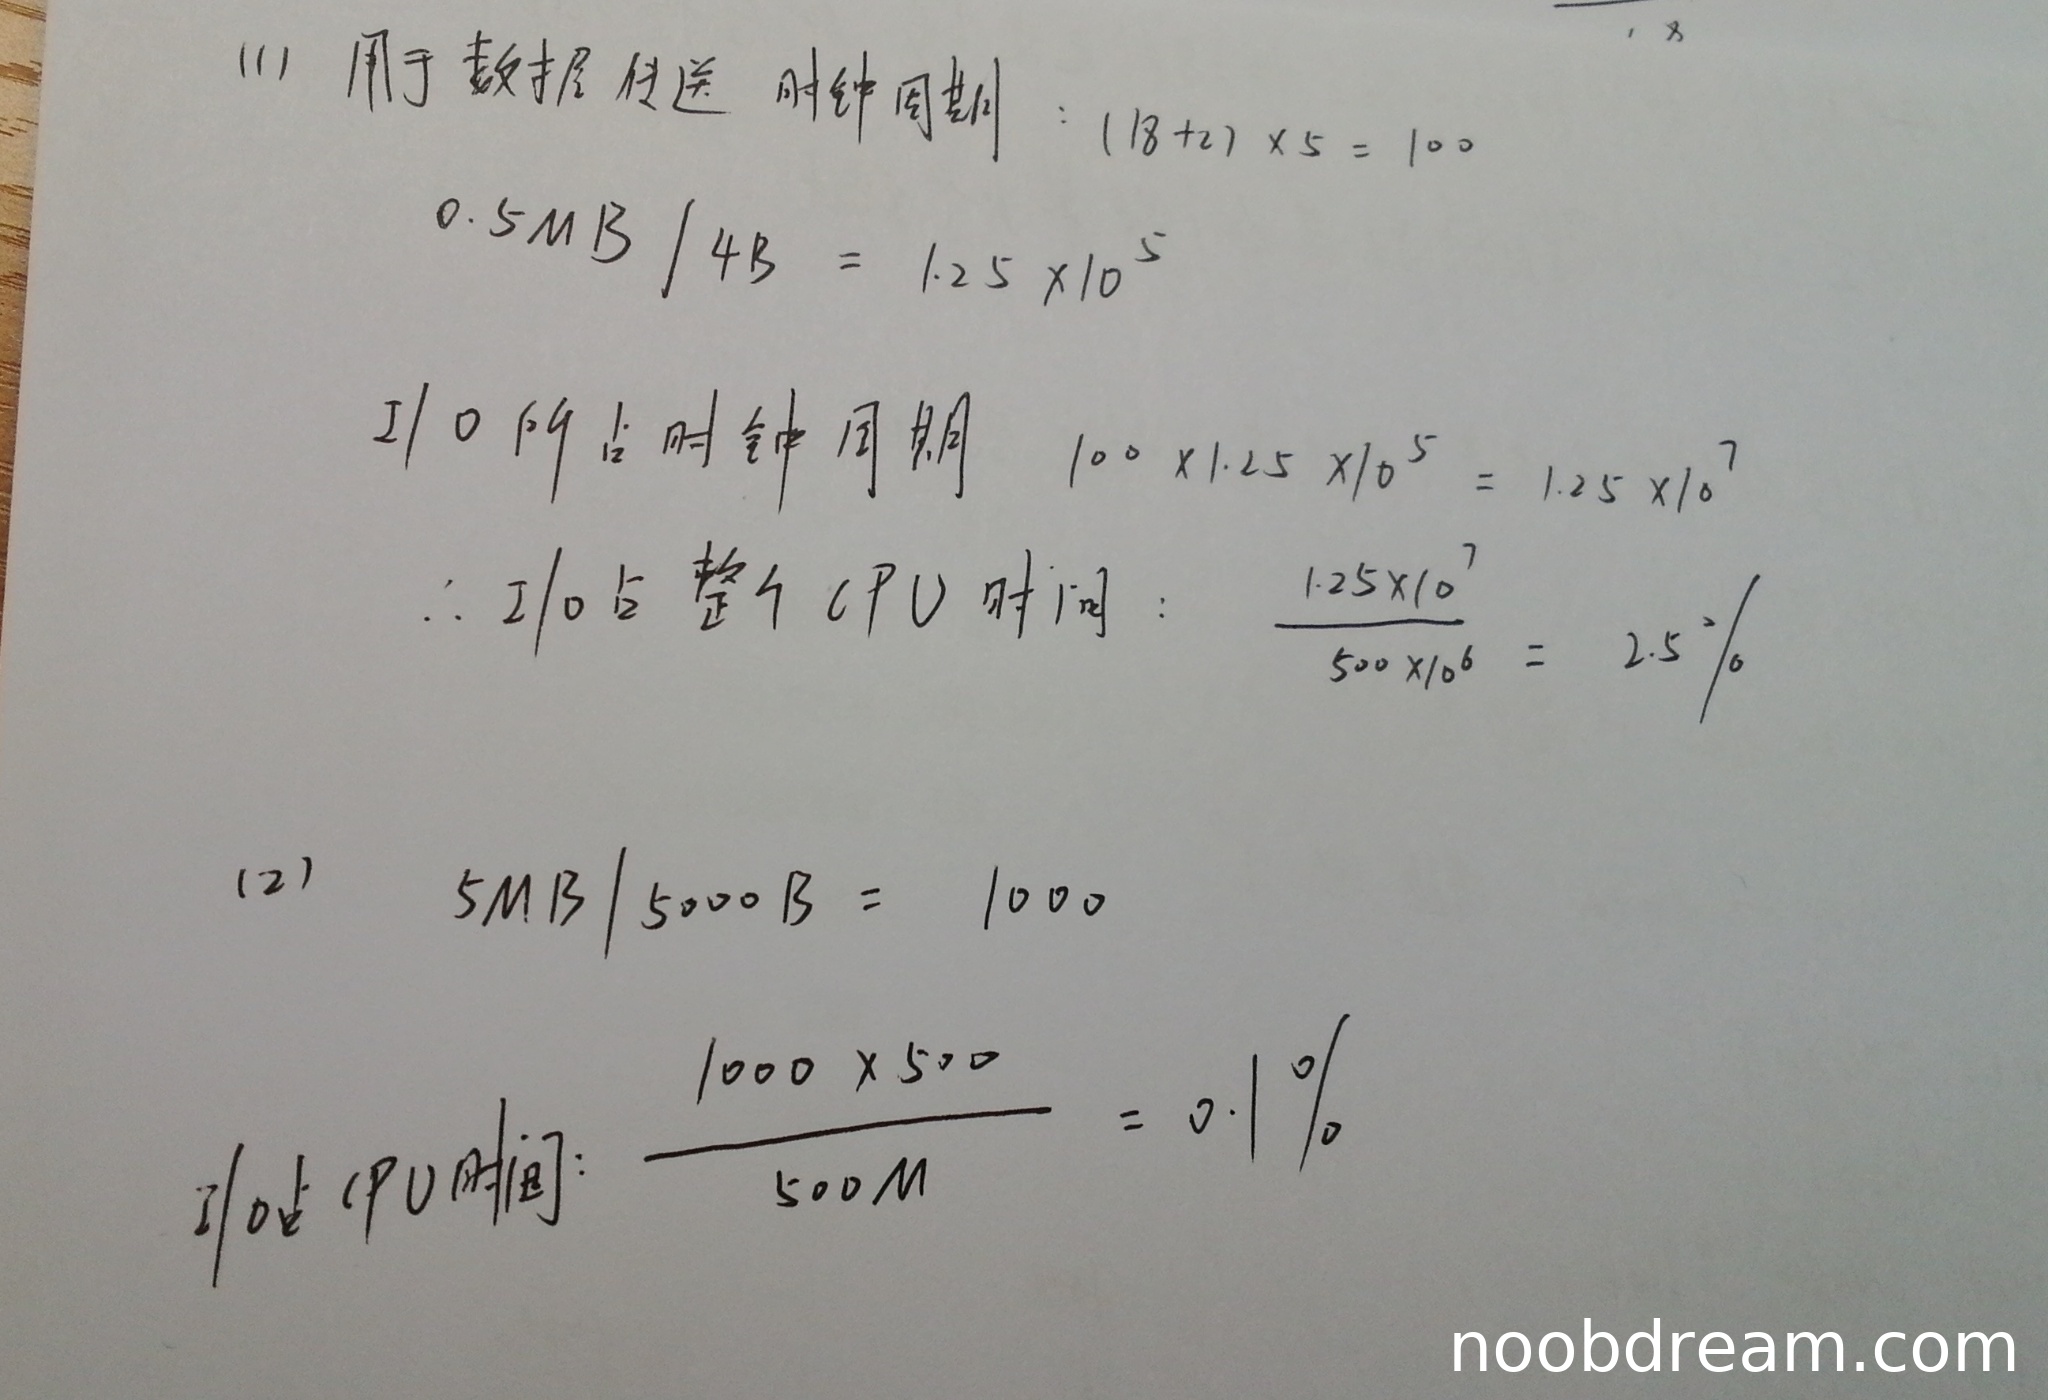 (1) 用于数据传送时钟周期 : (18+2) × 5 = 100
0.5MB / 4B = 1.25 × 10⁵
I/O 所占时钟周期 100 × 1.25 × 10⁵ = 1.25 × 10⁷
∴ I/O占整个CPU时间 : 1.25×10⁷ / 500×10⁶ = 2.5%
(2) 5MB / 5000B = 1000
I/O占CPU时间: 1000 × 500 / 500M = 0.1%
noobdream.com